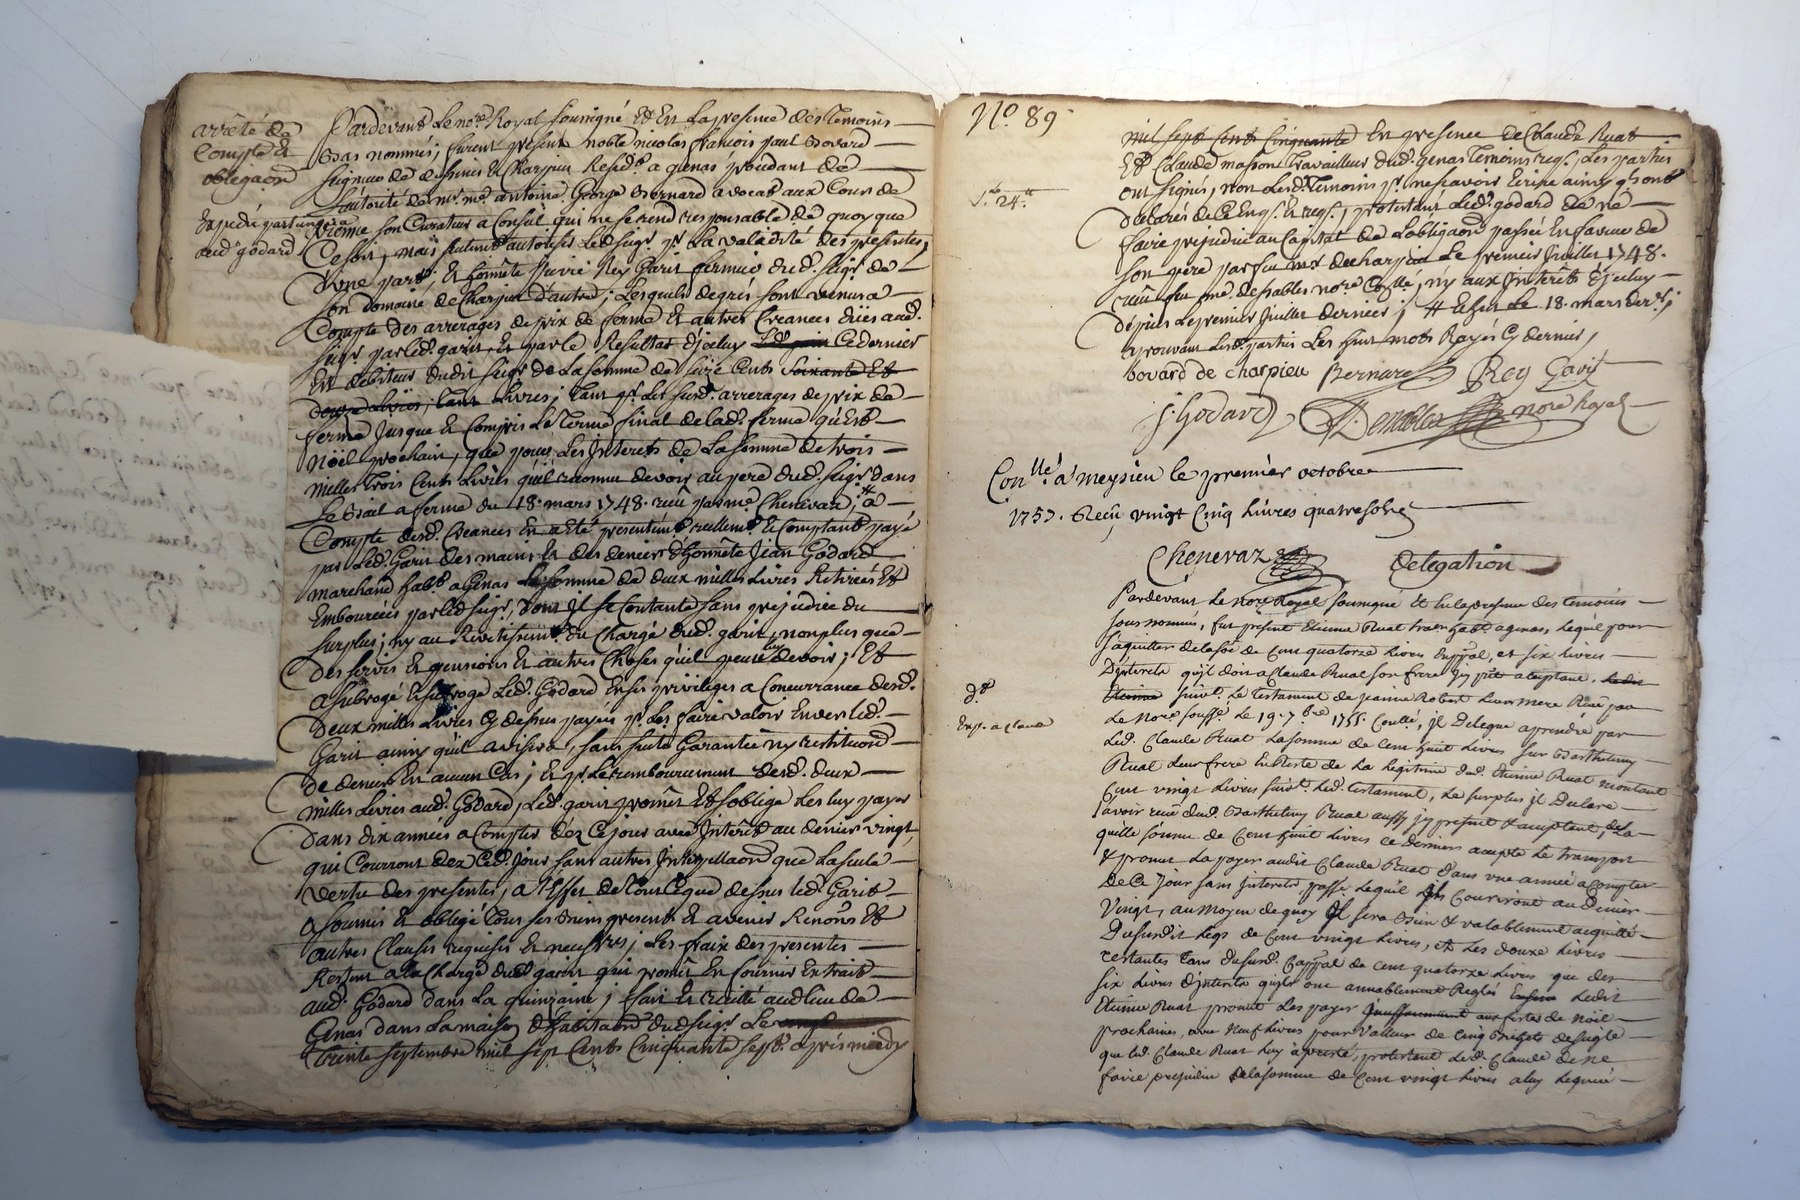 arrêté de
Compte Et
obligaon
Expedié
aud godard
Pardevant Le no.re Royal soussigné Et En La presence des Temoins
Bas nommés, furent present noble nicolas francois paul Bovard
Seigneur de Et Charpieu Resid.t a genas procedant de
L'autorité de m.r m.e antoine George Bernard avocat aux Cours de
vienne son Curateur a Conseil qui ne se rend responsable de quoy que
Ce soit, mais seulem.t autorise Led. seig.r p.r La validité des presentes,
D'une part; Et honnête pierre Rey Garit fermier dud. seig.r de
son domaine de Charpieu d'autre; Lesquels de gres sont venus a
Compte des arrerages de prix de ferme Et autres Creances dues aud.
seig.r par led. garit, Et par le Resultat d'iceluy Ce dernier
Est debiteur dudit seig.r de La somme de seize Cents soixante Et
Livres, Tant p.r Les susd. arrerages de prix de
ferme Jusque Et Compris Le Terme final de lad. ferme qu'est
Nöel prochain, que pour Les Interets de La somme de trois
milles trois Cents Livres qu'il reconnu devoir au pere dud. seig.r dans
Le Bail a ferme du 18. mars 1748. reçu par m.e Chenevaz, # a
Compte desd. Creances En a Eté presentem.t reellem.t Et Comptant payé
par Led. Garit des mains Et des deniers d'honnête Jean Godard
marchand hab.t a Genas La somme de deux milles Livres Retirées Et
Emboursées par led seig.r, Dont Il se Contente sans prejudice du
surplus; ny au du Chargé dud. garit, non plus que
Des servis Et pensions Et autres Choses qu'il peut luy devoir; Et
a subrogé Et subroge Led. Godard En ses privileges a Concurrance desd.
Deux milles Livres Cy dessus payées p.r Les faire valoir Envers led.
Garit ainsy qu'il avisera, sans suite Garantie ny restituon
De deniers En aucun Cas; Et p.r Le remboursement desd. deux
milles Livres aud. Godard, Led. garit promet Et s'oblige Les luy payer
Dans dix années a Compter dez Ce jour avec Interêt au denier vingt
qui Courront dez Led. Jour sans autres Interpellaon que La seule
Vertu des presentes, a L'Effet de Tout Ceque dessus led. Garit
a soumis Et obligé Tous ses Biens present Et avenir Renons Et
autres Clauses requises Et necess.res; Les fraix des presentes
Restent a la Charge dud. garit qui promet En fournir Extrait
aud. Godard dans La quinzaine; fait Et recitté aud lieu de
Genas dans La maison d'habitaon dud seig.r Le
trente septembre mil sept Cents Cinquante sept. apres midy
N.o 89
24.
mil sept Cent Cinquante En presence de Claude Ruat
Et Claude masson Travailleurs dud. genas Temoins req.s, Les parties
ont signés, non Lesd. Temoins p.r ne sçavoir Ecrire ainsy q.s ont
Declarés de Ce Enq.s Et req.s, protestant Led. godard de ne
faire prejudice au Capital de L'obligaon passée En faveur de
son pere par feu m.r de charpieu Le premier Juillet 1748.
reçu feu me desables no.re Coll.é, ny aux Interêts d'iceluy
Depuis Le premier Juillet dernier; # Et sur Le 18. mars der.r;
aprouvant Lesd. parties Les huit mots Rayés Cy dernier,
bovard de charpieu Bernard Rey Garit
J. Godard Desables nore Royal
Con.llé a meysieu le premier octobre
1757. Reçu vingt Cinq Livres quatre sols
Chenevaz
Delegation
d.t
Exp. a Claude
Pardevant Le nore Royal soussigné Et En la presence des temoins
sous nommés, fut present Etienne Ruat travr hab.t a genas, lequel pour
s'aquitter de la soe de Cent quatorze Livres Cappal, et six Livres
D'interets qu'il doit a Claude Ruat son frere Icy pnt acceptant,
Etienne suiv.t Le testament de jeanne Robert Leur mere Reçu par
Le nore soussé Le 19. 7.bre 1755. Collé, il Delegue a prendre par
Led. Claude Ruat La somme de Cent huit Livres sur Barthelemy
Ruat Leur frere En Reste de La Legitime dud. Etienne Ruat montant
Cent vingt Livres suiv.t Led. testament, Le surplus il Declare
l'avoir reçu dud. Barthelemy Ruat aussy icy present & acceptant, de la
quelle somme de Cent huit Livres ce dernier accepte Le transport
& promet La payer audit Claude Ruat Dans une année a compter
De Ce jour sans Interets, passé Lequel ils Courront au denier
Vingt, au moyen de quoy Il sera Bien & valablement acquitté
Du susdit Legs de Cent vingt Livres, et Les douze Livres
restantes tant du susd. Cappal de cent quatorze Livres que des
six Livres d'interets qu'ils ont amiablement Reglés Ledit
Etienne Ruat promet Les payer aux fêtes de Nöel
prochaines, avec Neuf Livres pour valleur de Cinq Bichets de seigle
que led. Claude Ruat Luy a presté, protestant Led. Claude de ne
faire prejudice de la somme de Cent vingt Livres a luy Leguée